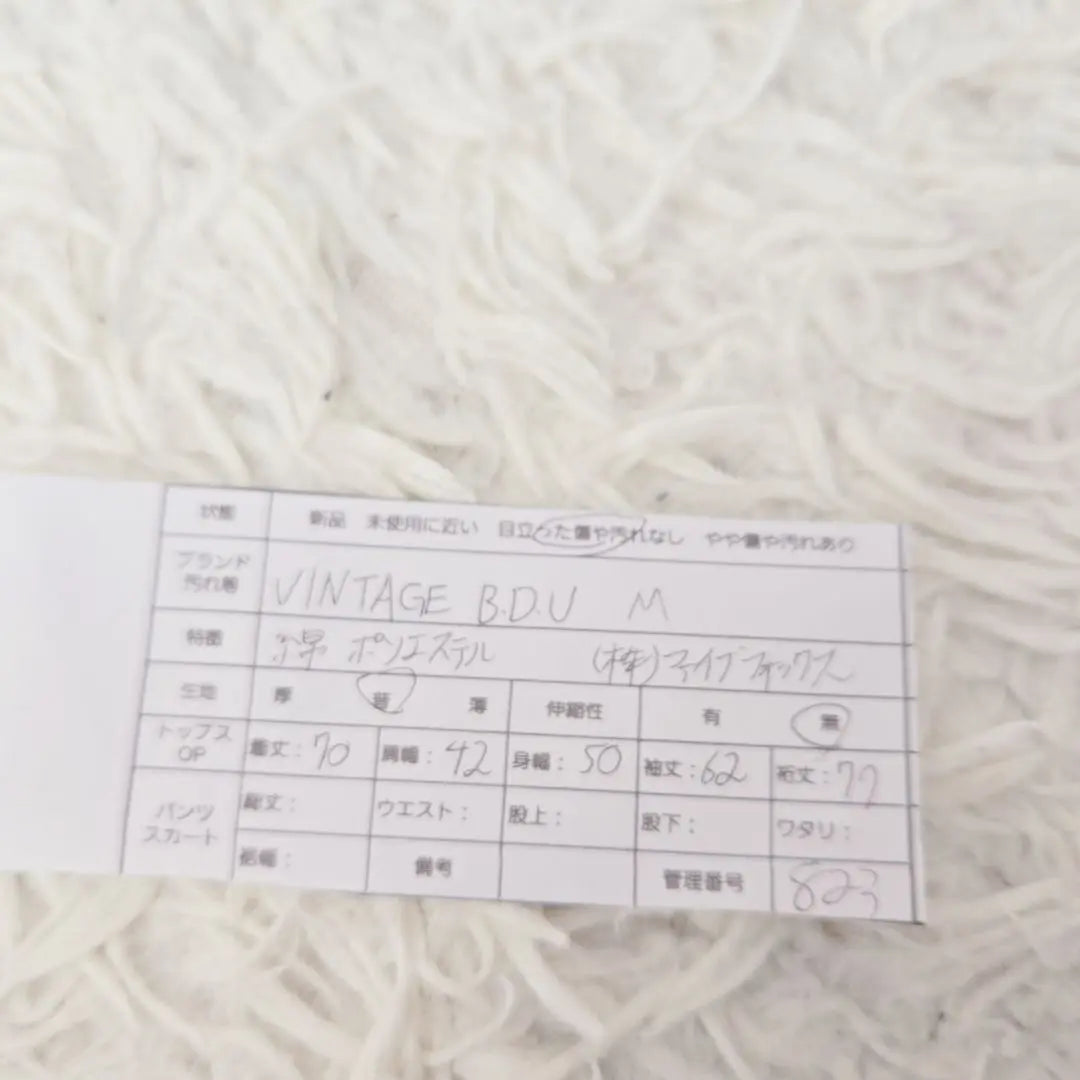 状態 新品 未使用に近い 目立った傷や汚れなし やや傷や汚れあり
ブランド VINTAGE B.D.U M
汚れ等
特徴 綿 ポリエステル (株)ファイブフォックス
生地 厚 普 薄 伸縮性 有 無
トップス OP 着丈:70 肩幅:42 身幅:50 袖丈:62 裄丈:77
パンツ スカート 総丈: ウエスト: 股上: 股下: ワタリ:
裾幅: 備考 管理番号 823